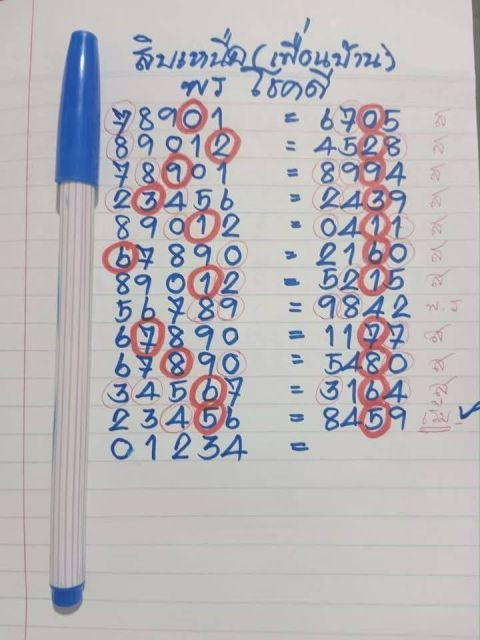 สิบเหนือ (เพื่อนบ้าน)
พร โชคดี
78901 = 6705
89012 = 4528
78901 = 8994
23456 = 2439
89012 = 0411
67890 = 2160
89012 = 5215
56789 = 9842
67890 = 1177
67890 = 5480
34567 = 3164
23456 = 8459
01234 =